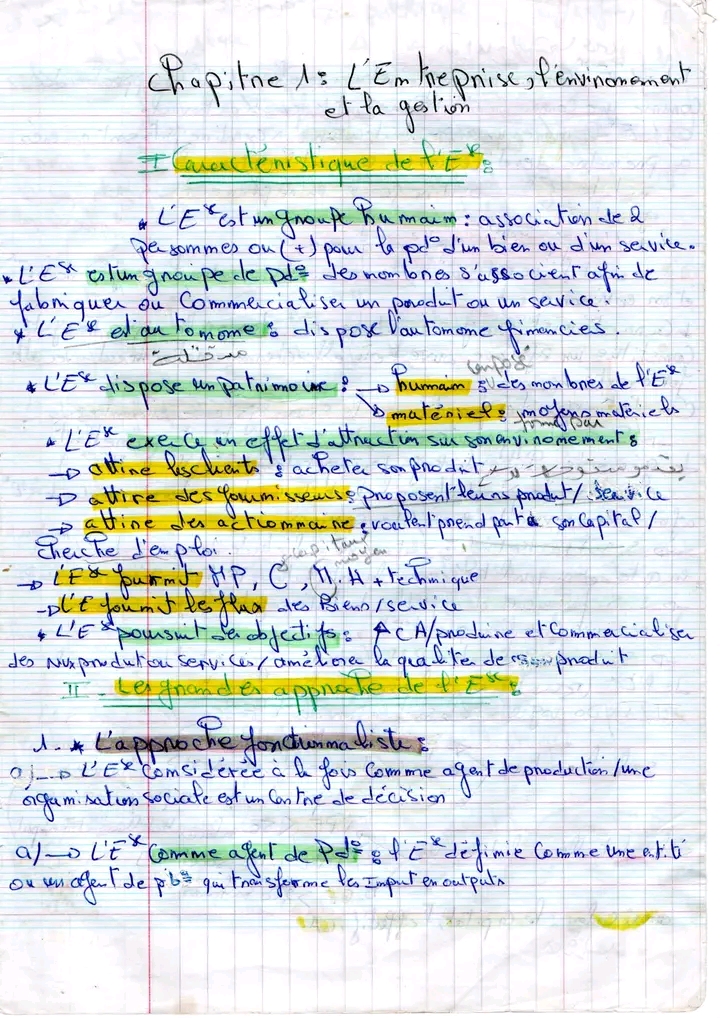 Chapitre 1: L'Entreprise, l'environement
et la gestion
I Caractéristique de l'Ese:
* L'Ese est un groupe humain : association de 2
personnes ou (+) pour la pd° d'un bien ou d'un service.
* L'Ese est un groupe de pd° des membres s'associent afin de
fabriquer ou Commercialiser un produit ou un service.
* L'Ese est autonome : dispose l'autonome financiers.
* L'Ese dispose un patrimoine : → humain : des membres de l'Ese
composé
→ matériel : moyens matériels
* L'Ese exerce un effet d'attraction sur son environement :
→ attire les clients : acheter son produit
→ attire des fournisseurs : proposent leurs produit / service
→ attire des actionnaire : veulent prend part à son capital /
cherche d'emploi.
→ L'Ese fournit MP, C, M.H + technique
moyen
→ L'E fournit les flux des Biens/service
* L'Ese poursuit des objectifs : ↑ CA/produire et Commercialiser
des produit ou services/améliorer la qualités de produit
II - Les grandes approche de l'Ese :
1. * L'approche fonctionnaliste :
a) → L'Ese Considérée à la fois comme agent de production /une
organisation sociale est un Centre de décision
a/ → L'Ese Comme agent de Pd° : l'Ese définie Comme une entité
ou un agent de qui transforme les Input en outputs